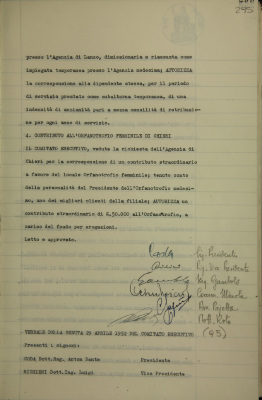 295
presso l'Agenzia di Lanzo, dimissionaria e riassunta come
impiegata temporanea presso l'Agenzia medesima; AUTORIZZA
la corresponsione alla dipendente stessa, per il periodo
di servizio prestato come subalterna temporanea, di una
indennità di anzianità pari a mezza mensilità di retribuzio-
ne per ogni anno di servizio.
4. CONTRIBUTO ALL'ORFANOTROFIO FEMMINILE DI CHIERI
IL COMITATO ESECUTIVO, veduta la richiesta dell'Agenzia di
Chieri per la corresponsione di un contributo straordinario
a favore del locale Orfanotrofio femminile; tenuto conto
della personalità del Presidente dell'Orfanotrofio medesi-
mo, uno dei migliori clienti della filiale; AUTORIZZA un
contributo straordinario di £.30.000 all'Orfanotrofio, a
carico del fondo per erogazioni.
Letto e approvato.
Coda
(95)
VERBALE DELLA SEDUTA 25 APRILE 1952 DEL COMITATO ESECUTIVO
Presenti i signori:
CODA Dott.Ing. Anton Dante Presidente
Dott.Ing. Luigi Vice Presidente